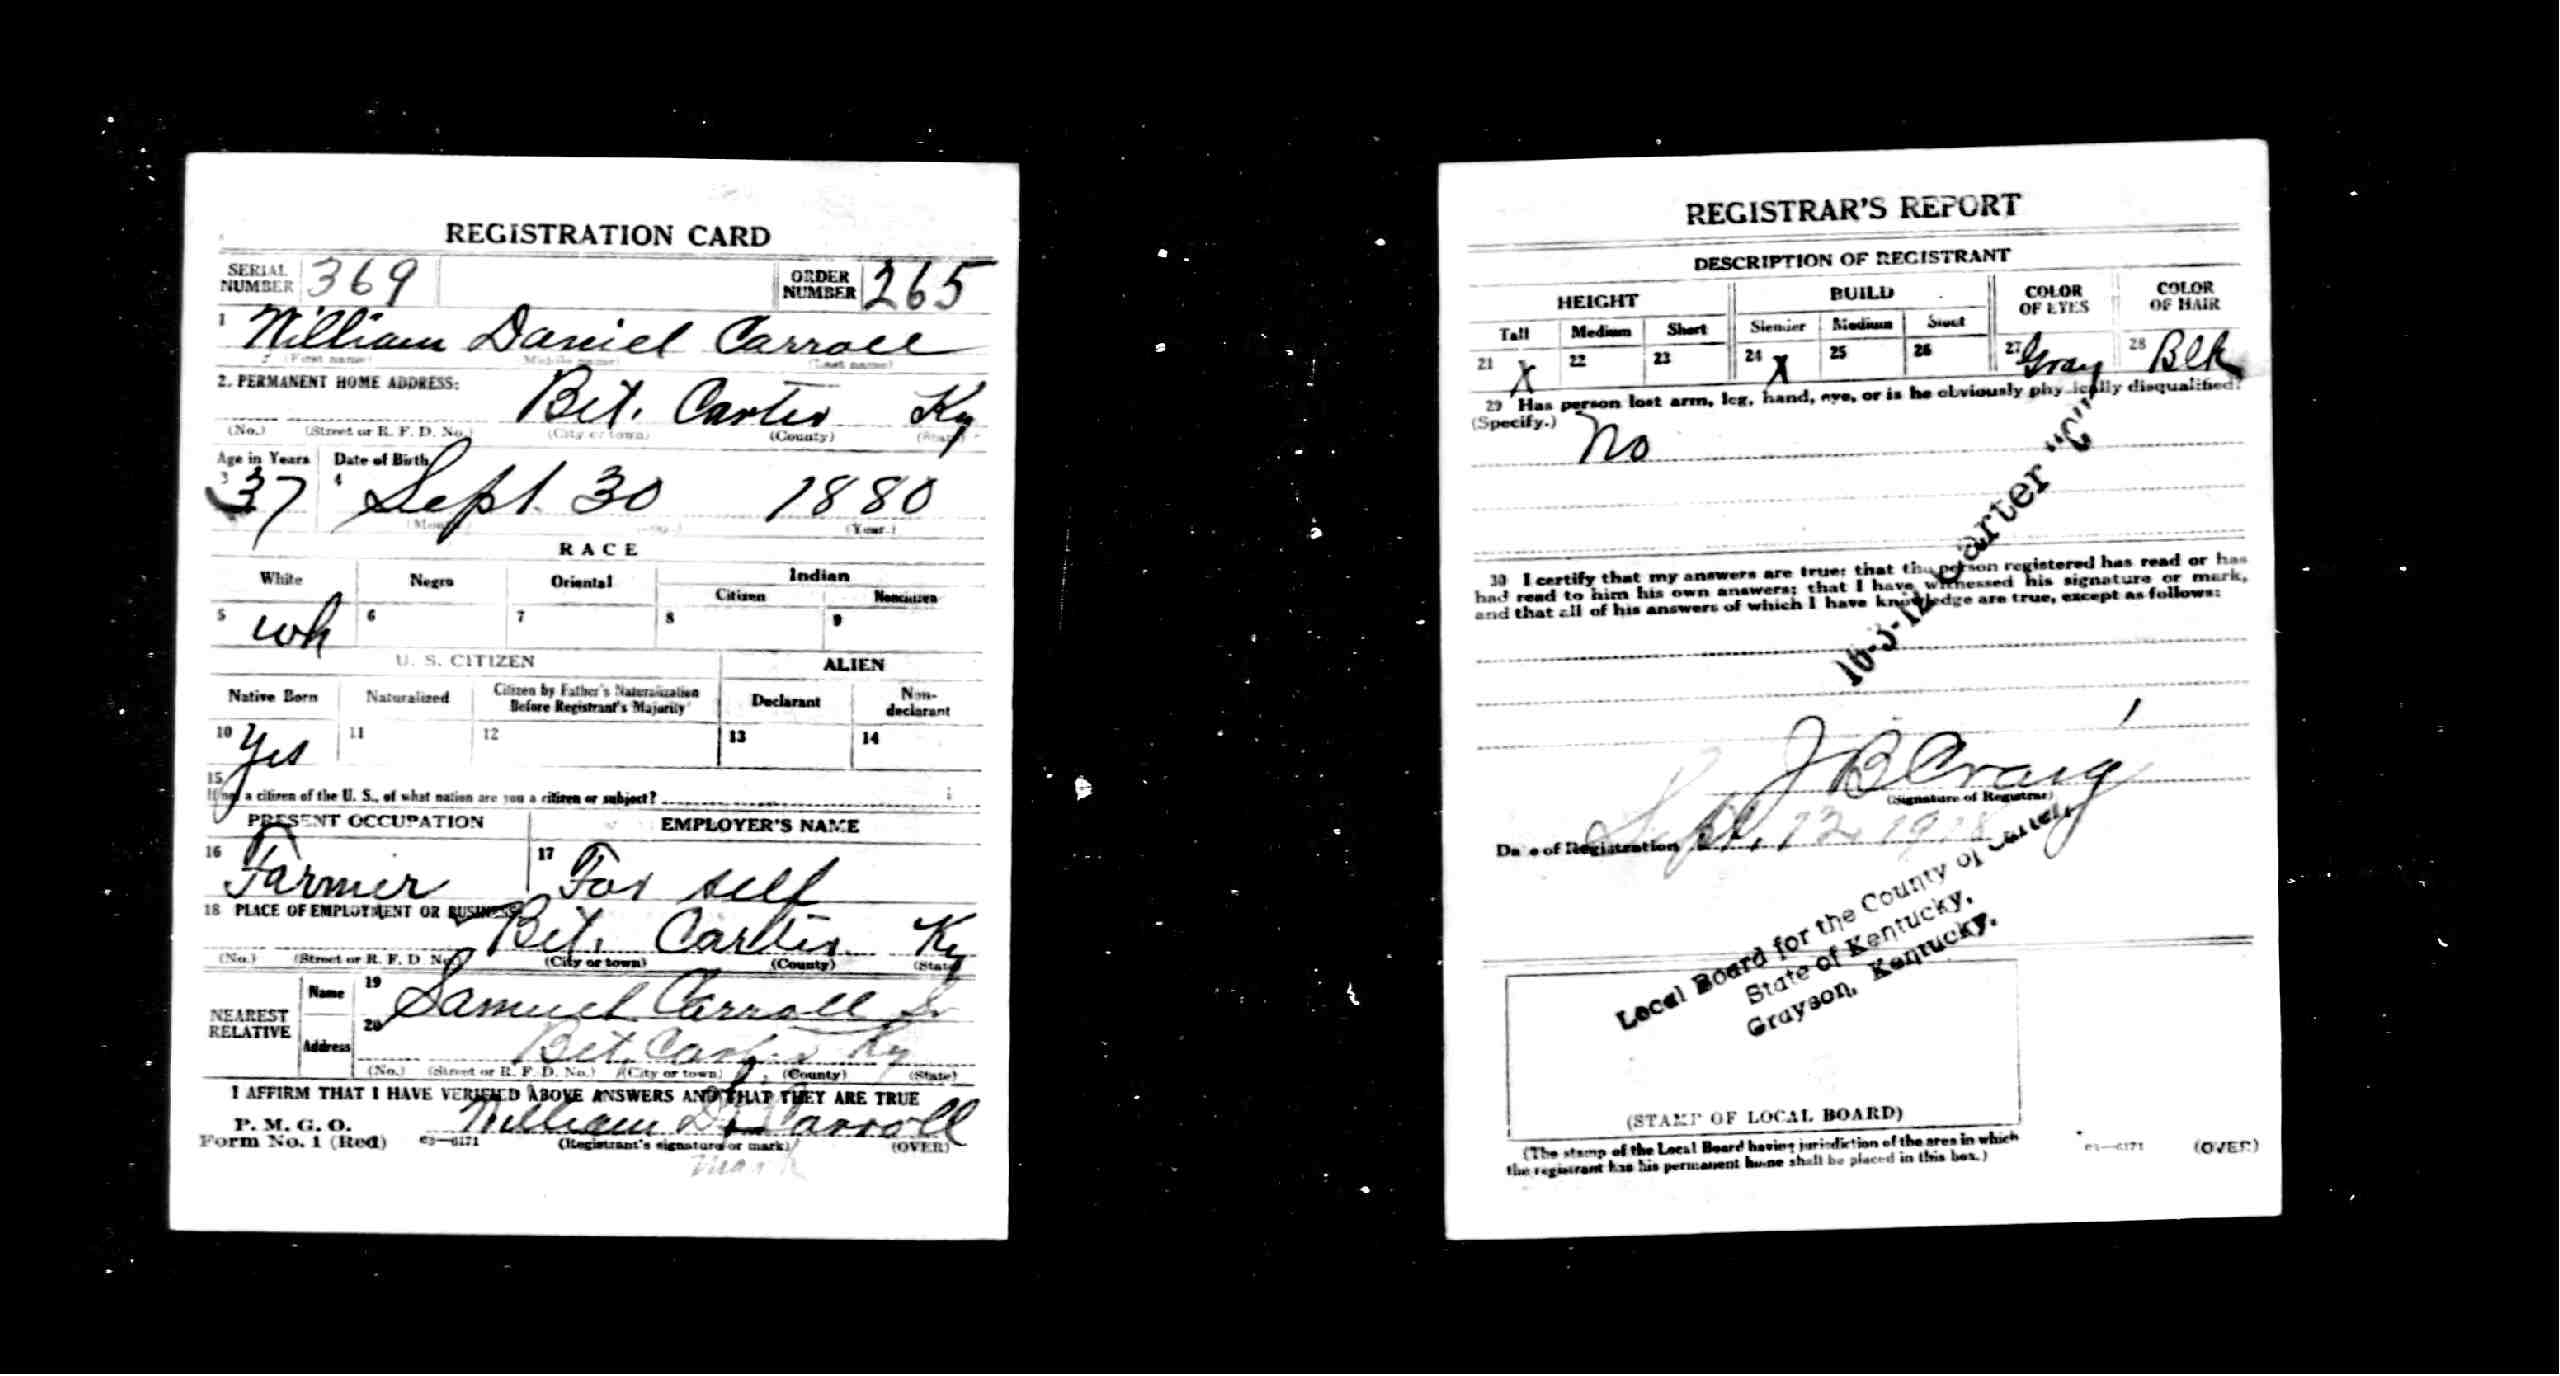 REGISTRATION CARD
SERIAL NUMBER 369 ORDER NUMBER 265
1 William Daniel Carroll
(First name) (Middle name) (Last name)
2. PERMANENT HOME ADDRESS:
Bet. Carter Ky
(No.) (Street or R. F. D. No.) (City or town) (County) (State)
Age in Years Date of Birth
3 37 4 Sept. 30 1880
(Month.) (Day.) (Year.)
RACE
White Negro Oriental Indian
Citizen Noncitizen
5 wh 6 7 8 9
U. S. CITIZEN ALIEN
Native Born Naturalized Citizen by Father's Naturalization Before Registrant's Majority Declarant Non-declarant
10 Yes 11 12 13 14
15
If not a citizen of the U. S., of what nation are you a citizen or subject?
PRESENT OCCUPATION EMPLOYER'S NAME
16 Farmer 17 For self
18 PLACE OF EMPLOYMENT OR BUSINESS:
Bet. Carter Ky
(No.) (Street or R. F. D. No.) (City or town) (County) (State)
NEAREST RELATIVE Name 19 Samuel Carroll
Address 20 Bet. Carter Ky
(No.) (Street or R. F. D. No.) (City or town) (County) (State)
I AFFIRM THAT I HAVE VERIFIED ABOVE ANSWERS AND THAT THEY ARE TRUE
P. M. G. O.
Form No. 1 (Red) 03—6171 William D. Carroll
(Registrant's signature or mark) (OVER)
mark
REGISTRAR'S REPORT
DESCRIPTION OF REGISTRANT
HEIGHT BUILD COLOR OF EYES COLOR OF HAIR
Tall Medium Short Slender Medium Stout
21 X 22 23 24 X 25 26 27 Gray 28 Blk
29 Has person lost arm, leg, hand, eye, or is he obviously physically disqualified?
(Specify.) No
16-3-12 Carter "C"
30 I certify that my answers are true; that the person registered has read or has
had read to him his own answers; that I have witnessed his signature or mark,
and that all of his answers of which I have knowledge are true, except as follows:
J B Craig
(Signature of Registrar)
Date of Registration Sept. 12 1918
Local Board for the County of Carter,
State of Kentucky,
Grayson, Kentucky.
(STAMP OF LOCAL BOARD)
(The stamp of the Local Board having jurisdiction of the area in which
the registrant has his permanent home shall be placed in this box.)
03—6171 (OVER)